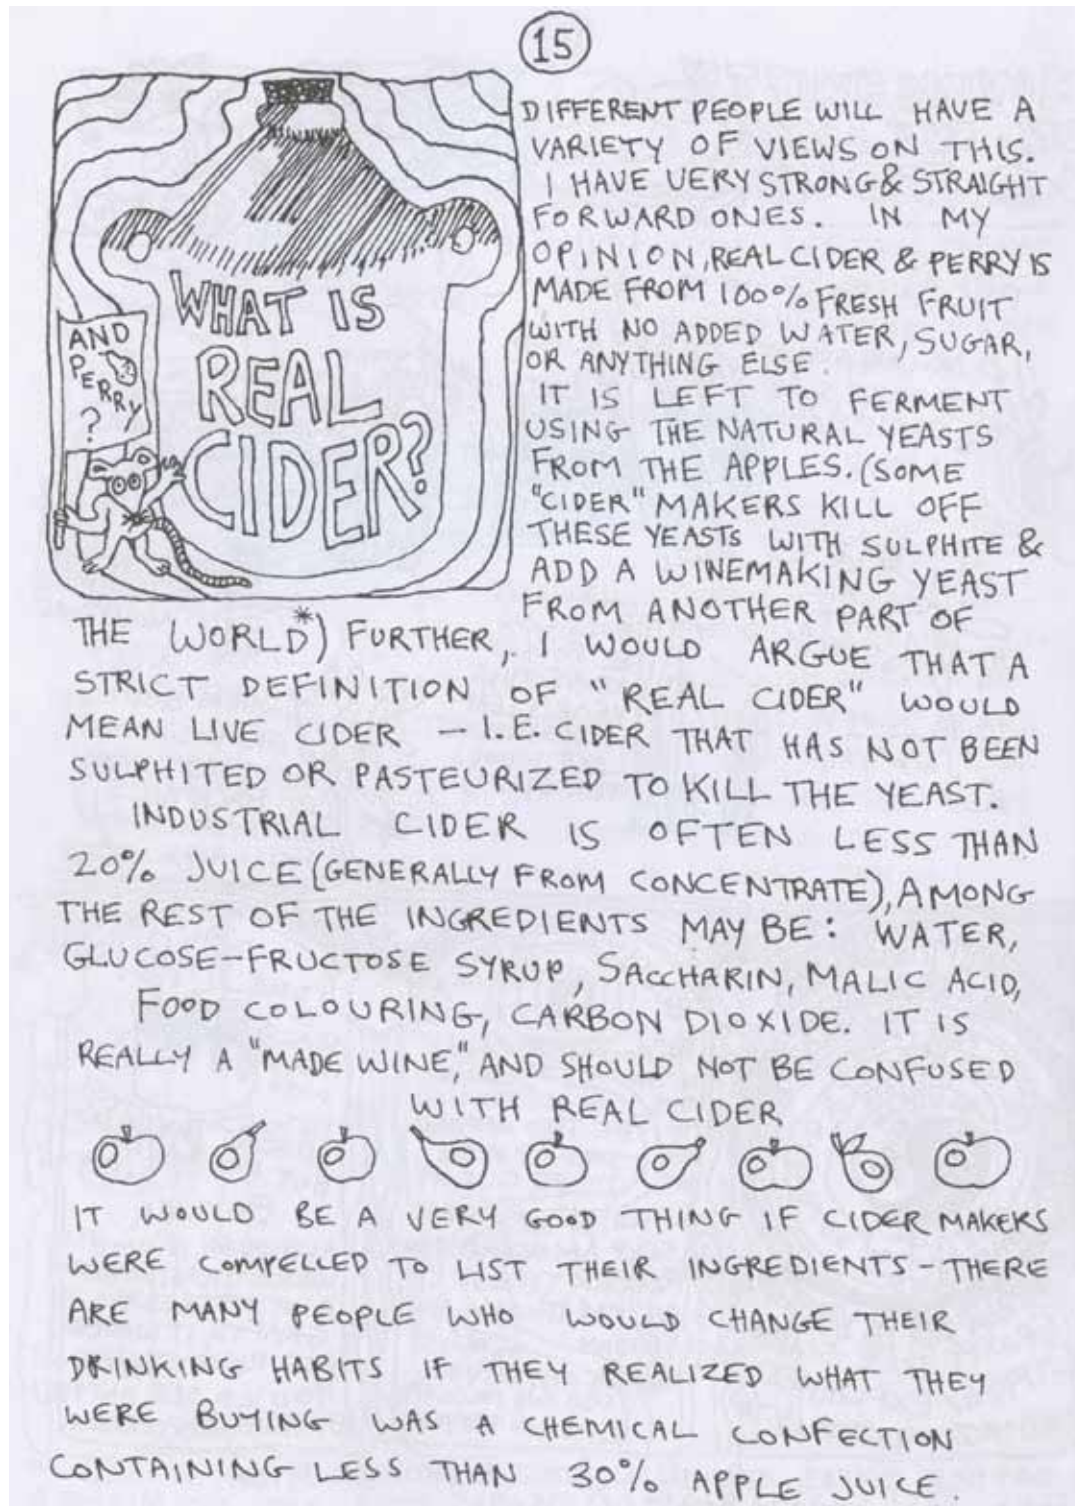 15
WHAT IS
REAL
CIDER?
AND
PERRY
?
DIFFERENT PEOPLE WILL HAVE A
VARIETY OF VIEWS ON THIS.
I HAVE VERY STRONG & STRAIGHT
FORWARD ONES. IN MY
OPINION, REAL CIDER & PERRY IS
MADE FROM 100% FRESH FRUIT
WITH NO ADDED WATER, SUGAR,
OR ANYTHING ELSE.
IT IS LEFT TO FERMENT
USING THE NATURAL YEASTS
FROM THE APPLES. (SOME
"CIDER" MAKERS KILL OFF
THESE YEASTS WITH SULPHITE &
ADD A WINEMAKING YEAST
FROM ANOTHER PART OF
THE WORLD*) FURTHER, I WOULD ARGUE THAT A
STRICT DEFINITION OF "REAL CIDER" WOULD
MEAN LIVE CIDER — I.E. CIDER THAT HAS NOT BEEN
SULPHITED OR PASTEURIZED TO KILL THE YEAST.
INDUSTRIAL CIDER IS OFTEN LESS THAN
20% JUICE (GENERALLY FROM CONCENTRATE), AMONG
THE REST OF THE INGREDIENTS MAY BE: WATER,
GLUCOSE-FRUCTOSE SYRUP, SACCHARIN, MALIC ACID,
FOOD COLOURING, CARBON DIOXIDE. IT IS
REALLY A "MADE WINE," AND SHOULD NOT BE CONFUSED
WITH REAL CIDER
IT WOULD BE A VERY GOOD THING IF CIDER MAKERS
WERE COMPELLED TO LIST THEIR INGREDIENTS - THERE
ARE MANY PEOPLE WHO WOULD CHANGE THEIR
DRINKING HABITS IF THEY REALIZED WHAT THEY
WERE BUYING WAS A CHEMICAL CONFECTION
CONTAINING LESS THAN 30% APPLE JUICE.